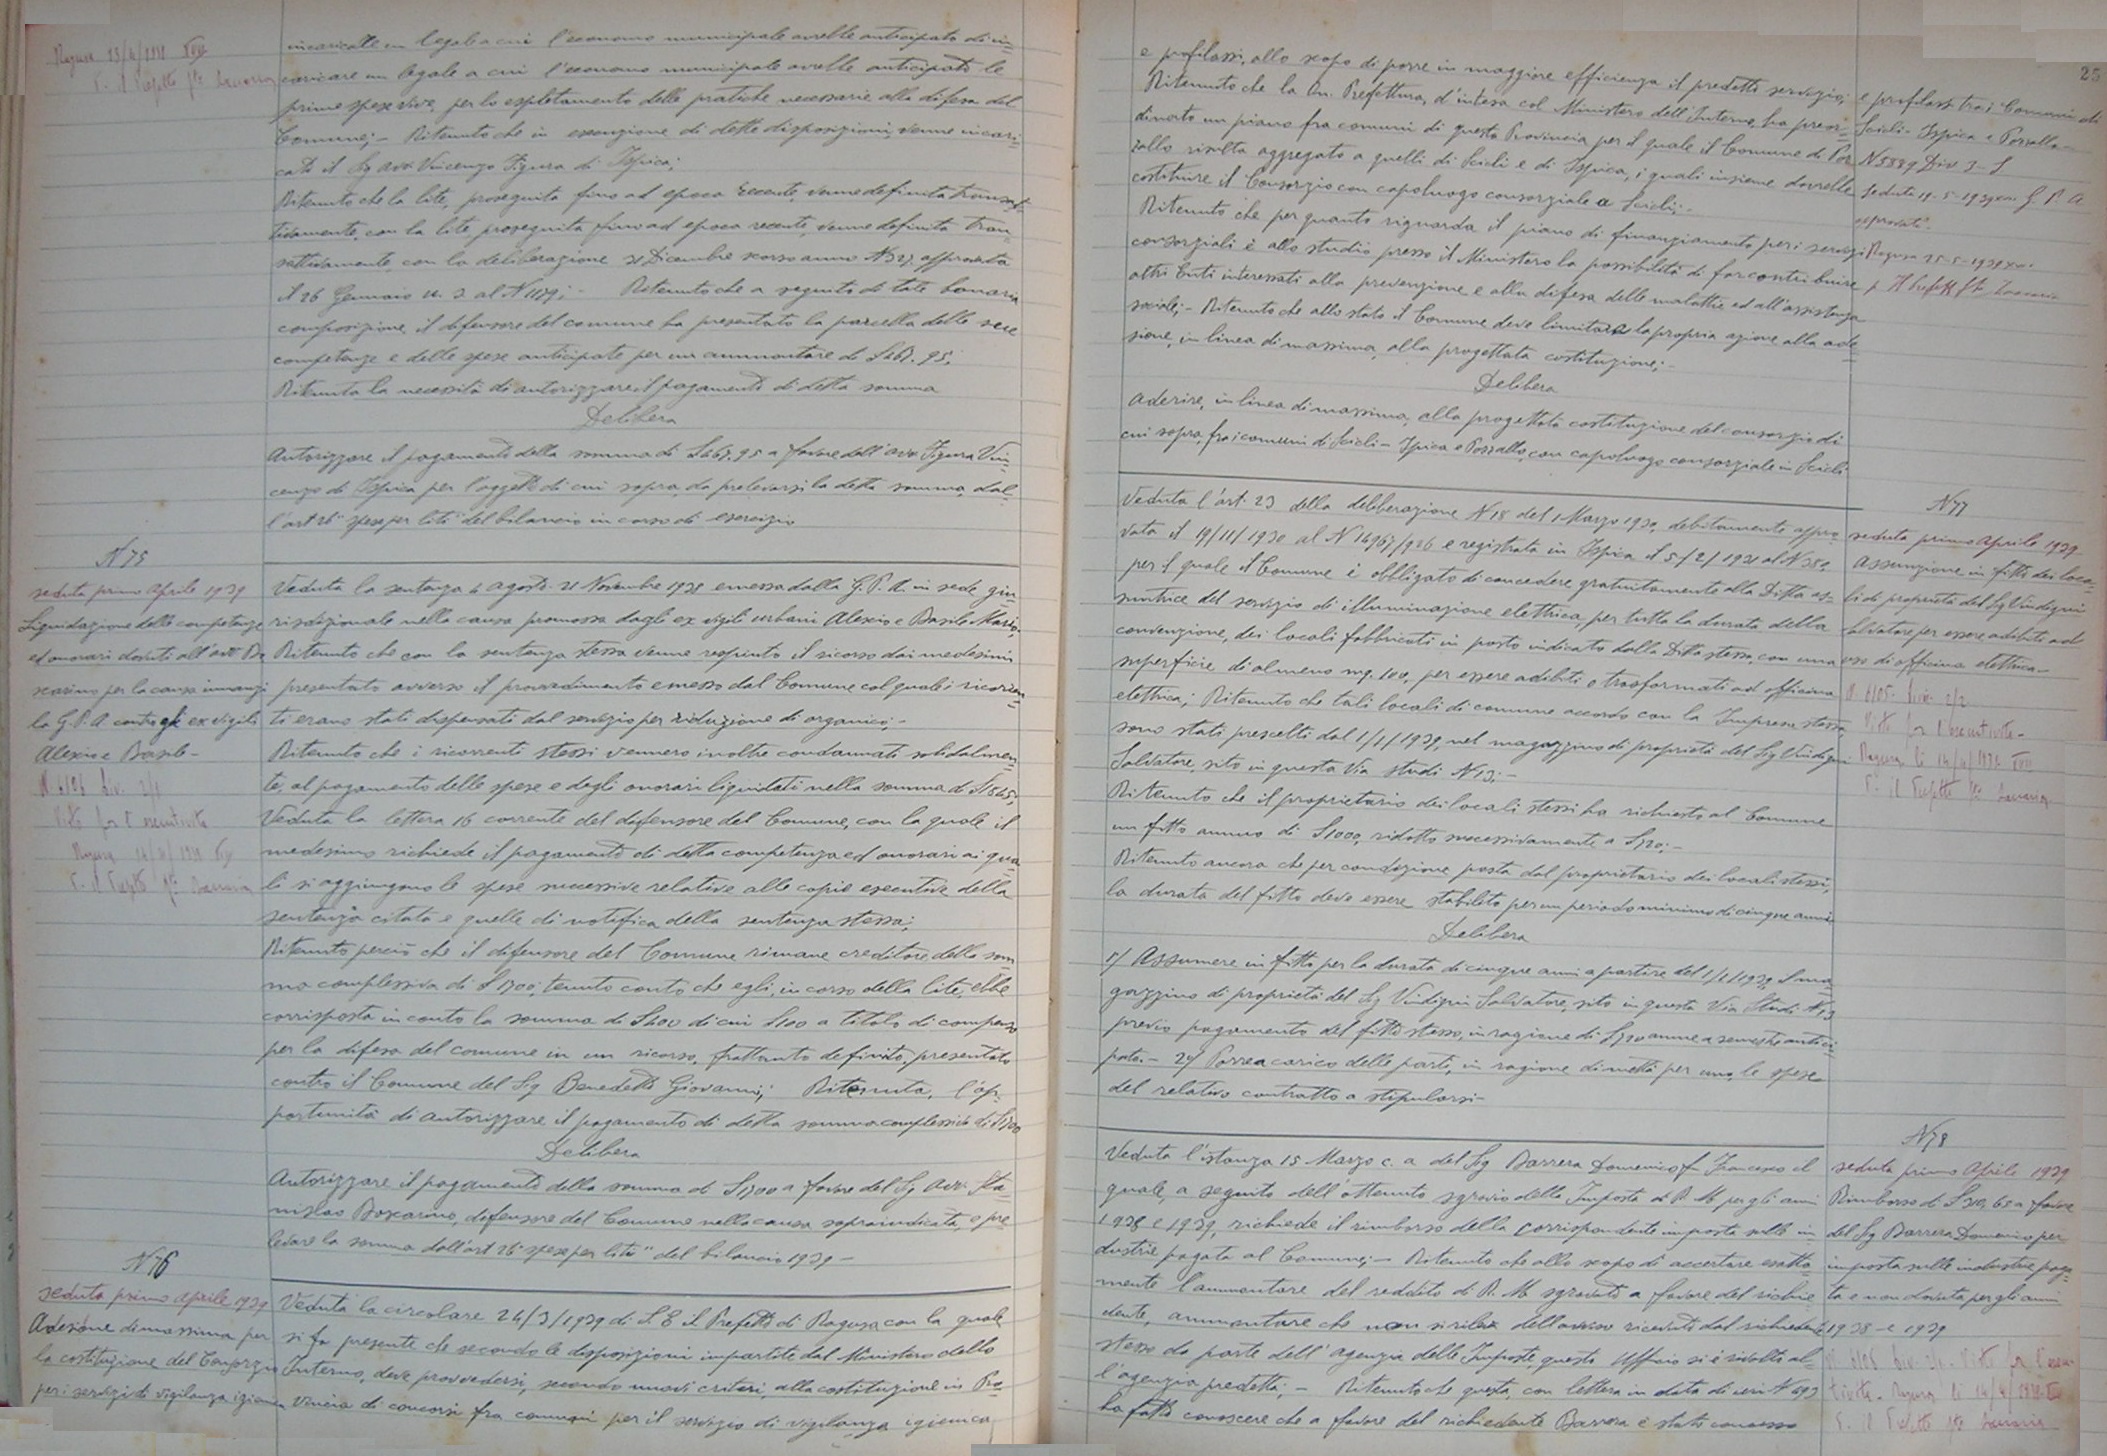 incaricate un legale a cui l'economo municipale avrebbe anticipato di in=
caricare un legale a cui l'economo municipale avrebbe anticipato le
prime spese vive, per lo espletamento delle pratiche necessarie alla difesa del
Comune;- Ritenuto che in esecuzione di dette disposizioni, venne incari=
cato il Sg avv Vincenzo Figura di Ispica;
Ritenuto che la lite, proseguita fino ad epoca recente, venne definita transat=
tivamente, con la lite, proseguita fino ad epoca recente, venne definita tran=
sattivamente, con la deliberazione 31 Dicembre scorso anno N 327, approvata
il 26 Gennaio u. s. al N 1179;- Ritenuto che a seguito di tale bonaria
composizione, il difensore del comune ha presentato la parcella delle sue
competenze e delle spese anticipate per un ammontare di
Ritenuta la necessità di autorizzare il pagamento di detta somma
Delibera
Autorizzare il pagamento della somma di a favore dell'avv. Figura Vin=
cenzo di Ispica per l'oggetto di cui sopra, da prelevarsi la detta somma, dal=
l'art 26 "spese per liti" del bilancio in corso di esercizio
N 75
seduta primo Aprile 1939
Liquidazione delle competenze
ed onorari dovuti all'avv Bo
scarino per la causa innanzi
la G.P.A contro gli ex vigili
Alescio e Basile-
Veduta la sentenza 4 agosto 21 Novembre 1938 emessa dalla G.P.A. in sede giu=
risdizionale nella causa promossa dagli ex vigili urbani Alescio e Basile Mario;
Ritenuto che con la sentenza stessa venne respinto il ricorso dai medesimi
presentato avverso il provvedimento emesso dal Comune col quale i ricorren=
ti erano stati dispensati dal servizio per riduzione di organici;-
Ritenuto che i ricorrenti stessi vennero inoltre condannati solidalmen=
te, al pagamento delle spese e degli onorari liquidati nella somma di
Veduta la lettera 16 corrente del difensore del Comune, con la quale il
medesimo richiede il pagamento di detta competenza ed onorari ai qua=
li si aggiungono le spese successive relative alle copie esecutive della
sentenza citata e quelle di notifica della sentenza stessa;
Ritenuto perciò che il difensore del Comune rimane creditore della som
ma complessiva di tenuto conto che egli, in corso della lite, ebbe
corrisposta in conto la somma di di cui a titolo di compenso
per la difesa del comune in un ricorso, frattanto definito, presentato
contro il Comune del Sig Benedetto Giovanni; Ritenuta, l'op=
portunità di autorizzare il pagamento di detta somma complessiva di
Delibera
Autorizzare il pagamento della somma di a favore del Sg Avv. Sta=
nislao Boscarino, difensore del Comune nella causa sopraindicata, e pre
levare la somma dall'art 26 "spese per liti" del bilancio 1939-
N 76
seduta primo Aprile 1939
Adesione di massima per
la costituzione del Consorzio
per i servizi di vigilanza igienica
Veduta la circolare 24/3/1939 di S.E il Prefetto di Ragusa con la quale
si fa presente che secondo le disposizioni impartite dal Ministero dello
Interno, deve provvedersi, secondo nuovi criteri, alla costituzione in Pro=
vincia di concorsi fra comuni per il servizio di vigilanza igienica
25
e profilassi, allo scopo di porre in maggiore efficienza il predetto servizio;
Ritenuto che la On. Prefettura, d'intesa col Ministero dell'Interno, ha preor=
dinato un piano fra comuni di questa Provincia per il quale il Comune di Poz
zallo risulta aggregato a quelli di Scicli e di Ispica, i quali insieme dovrebbe
costituire il Consorzio con capoluogo consorziale a Scicli;-
Ritenuto che per quanto riguarda il piano di finanziamento per i servizi
consorziali è allo studio presso il Ministero la possibilità di far contribuire
altri Enti interessati alla prevenzione e alla difesa delle malattie ed all'assistenza
sociale;- Ritenuto che allo stato il Comune deve limitare la propria azione alla ade=
sione, in linea di massima, alla progettata costituzione;-
Delibera
Aderire, in linea di massima, alla progettata costituzione del consorzio di
cui sopra, fra i comuni di Scicli - Ispica e Pozzallo, con capoluogo consorziale in Scicli
e profilassi tra i Comuni di
Scicli - Ispica e Pozzallo-
N 5889 Div 3-S
seduta 19-5-1939 G. P. A
approvata.
Ragusa 25-5-1939
Veduta l'art. 23 della deliberazione N 18 del 1 Marzo 1930, debitamente appro
vata il 19/11/1930 al N e registrata in Ispica il 5/2/1931 al N
per il quale il Comune è obbligato di concedere gratuitamente alla Ditta as=
suntrice del servizio di illuminazione elettrica, per tutta la durata della
convenzione, dei locali fabbricati in posto indicato dalla Ditta stessa, con una
superficie di almeno mq. 100, per essere adibiti o trasformati ad officina
elettrica; Ritenuto che tali locali di comune accordo con la Impresa stessa
sono stati prescelti dal 1/1/1939, nel magazzino di proprietà del Sg Vindigni
Salvatore, sito in questa Via Studi N 13;-
Ritenuto che il proprietario dei locali stessi ha richiesto al Comune
un fitto annuo di £1000, ridotto successivamente a
Ritenuto ancora che per condizione posta dal proprietario dei locali stessi,
la durata del fitto deve essere stabilito per un periodo minimo di cinque anni
Delibera
1°/ Assumere in fitto per la durata di cinque anni a partire del 1/1/1939 il ma
gazzino di proprietà del Sg Vindigni Salvatore, sito in questa Via Studi N 13
previo pagamento del fitto stesso, in ragione di annue a semestre antici=
pato.- 2°/ Porre a carico delle parti, in ragione di metà per uno, le spese
del relativo contratto a stipularsi-
N 77
seduta primo Aprile 1939
Assunzione in fitto dei loca=
li di proprietà del Sg Vindigni
Salvatore per essere adibiti ad
uso di officina elettrica-
Veduta l'istanza 15 Marzo c. a del Sig Barrera Domenico f. Francesco il
quale, a seguito dell'ottenuto sgravio della Imposta di R. M per gli anni
1938 e 1939, richiede il rimborso della corrispondente imposta sulle in
dustrie pagata al Comune;- Ritenuto che allo scopo di accertare esatta=
mente l'ammontare del reddito di R. M sgravato a favore del richie
dente, ammontare che non si rileva dell'avviso ricevuto dal richiedente
stesso da parte dell'agenzia delle Imposte, questo Ufficio si è rivolto al=
l'agenzia predetta;- Ritenuto che questa, con lettera in data di ieri N 693
ha fatto conoscere che a favore del richiedente Barrera è stato concesso
N 78
seduta primo Aprile 1939
Rimborso di a favore
del Sg Barrera Domenico per
imposta sulle industrie paga=
ta e non dovuta per gli anni
1938 - e 1939